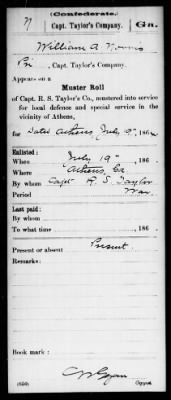 Confederate.
N Capt. Taylor's Company. Ga.
William A Norris
Pri, Capt. Taylor's Company.
Appears on a
Muster Roll
of Capt. R. S. Taylor's Co., mustered into service
for local defence and special service in the
vicinity of Athens,
for dated Athens July 9", 186
Enlisted:
When July 19", 186 .
Where Athens, Ga
By whom Capt R. S. Taylor
Period War
Last paid:
By whom
To what time , 186 .
Present or absent Present
Remarks:
Book mark:
Copyist.